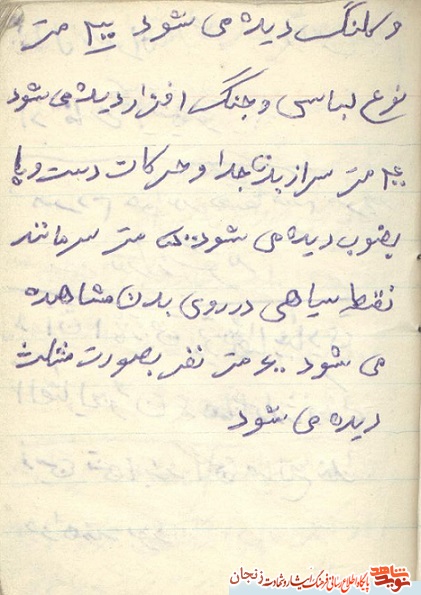 و کلنگ دیده می شود ۳۰۰ متر
نوع لباسی و جنگ افزار دیده می شود
۴۰۰ متر سر از بدن جدا و حرکات دست و پا
بخوب دیده می شود ۵۰۰ متر سر مانند
نقطه سیاهی در روی بدن مشاهده
می شود ۶۰۰ متر نفر بصورت مثلث
دیده می شود
پایگاه اطلاع رسانی فرهنگ ایثار و شهادت زنجان
نوید شاهد